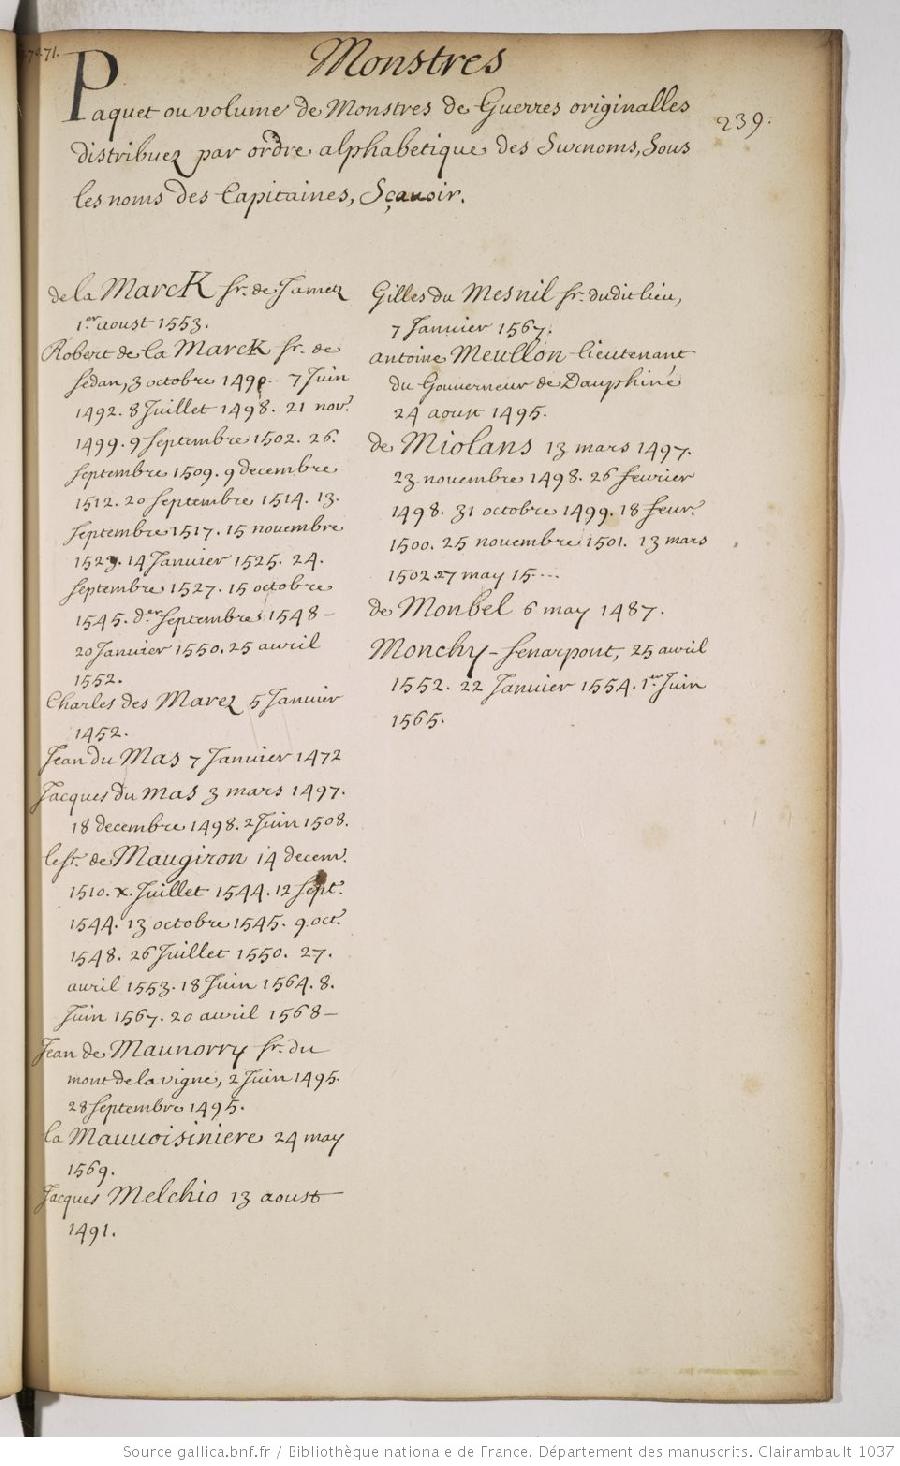 Monstres
239.
Paquet ou volume de Monstres de Guerres originalles
distribuez par ordre alphabetique des Surnoms, Sous
les noms des Capitaines, Sçauoir.
de la Marck sr. de Jametz
1.er aoust 1553.
Robert de la Marck sr. de
sedan, 3 octobre 1490. 7 Juin
1492. 8 Juillet 1498. 21 nov.
1499. 9 septembre 1502. 26.
septembre 1509. 9 decembre
1512. 20 septembre 1514. 13.
septembre 1517. 15 novembre
1523. 14 Janvier 1525. 24.
septembre 1527. 15 octobre
1545. d.er septembre 1548 –
20 Janvier 1550. 25 avril
1552.
Charles des Marez 5 Janvier
1452.
Jean du Mas 7 Janvier 1472
Jacques du mas 3 mars 1497.
18 decembre 1498. 2 Juin 1508.
le sr. de Maugiron 14 decem.
1510. x. Juillet 1544. 12 sept.
1544. 13 octobre 1545. 9 oct.
1548. 26 Juillet 1550. 27.
avril 1553. 18 Juin 1564. 8.
Juin 1567. 20 avril 1568 –
Jean de Maunorry sr. du
mont de la vigne, 2 Juin 1495.
28 septembre 1495.
la Mauuoisiniere 24 may
1569.
Jacques Melchio 13 aoust
1491.
Gilles du Mesnil sr. dudit lieu,
7 Janvier 1567.
antoine Meullon lieutenant
du Gouverneur de Dauphiné
24 aoust 1495.
de Miolans 13 mars 1497.
23 novembre 1498. 26 fevrier
1498. 31 octobre 1499. 18 feur.
1500. 25 novembre 1501. 13 mars
1502. 27 may 15---
de Monbel 6 may 1487.
Monchy – senarpont, 25 avril
1552. 22 Janvier 1554. 1.er Juin
1565.
Source gallica.bnf.fr / Bibliothèque nationale de France. Département des manuscrits. Clairambault 1037